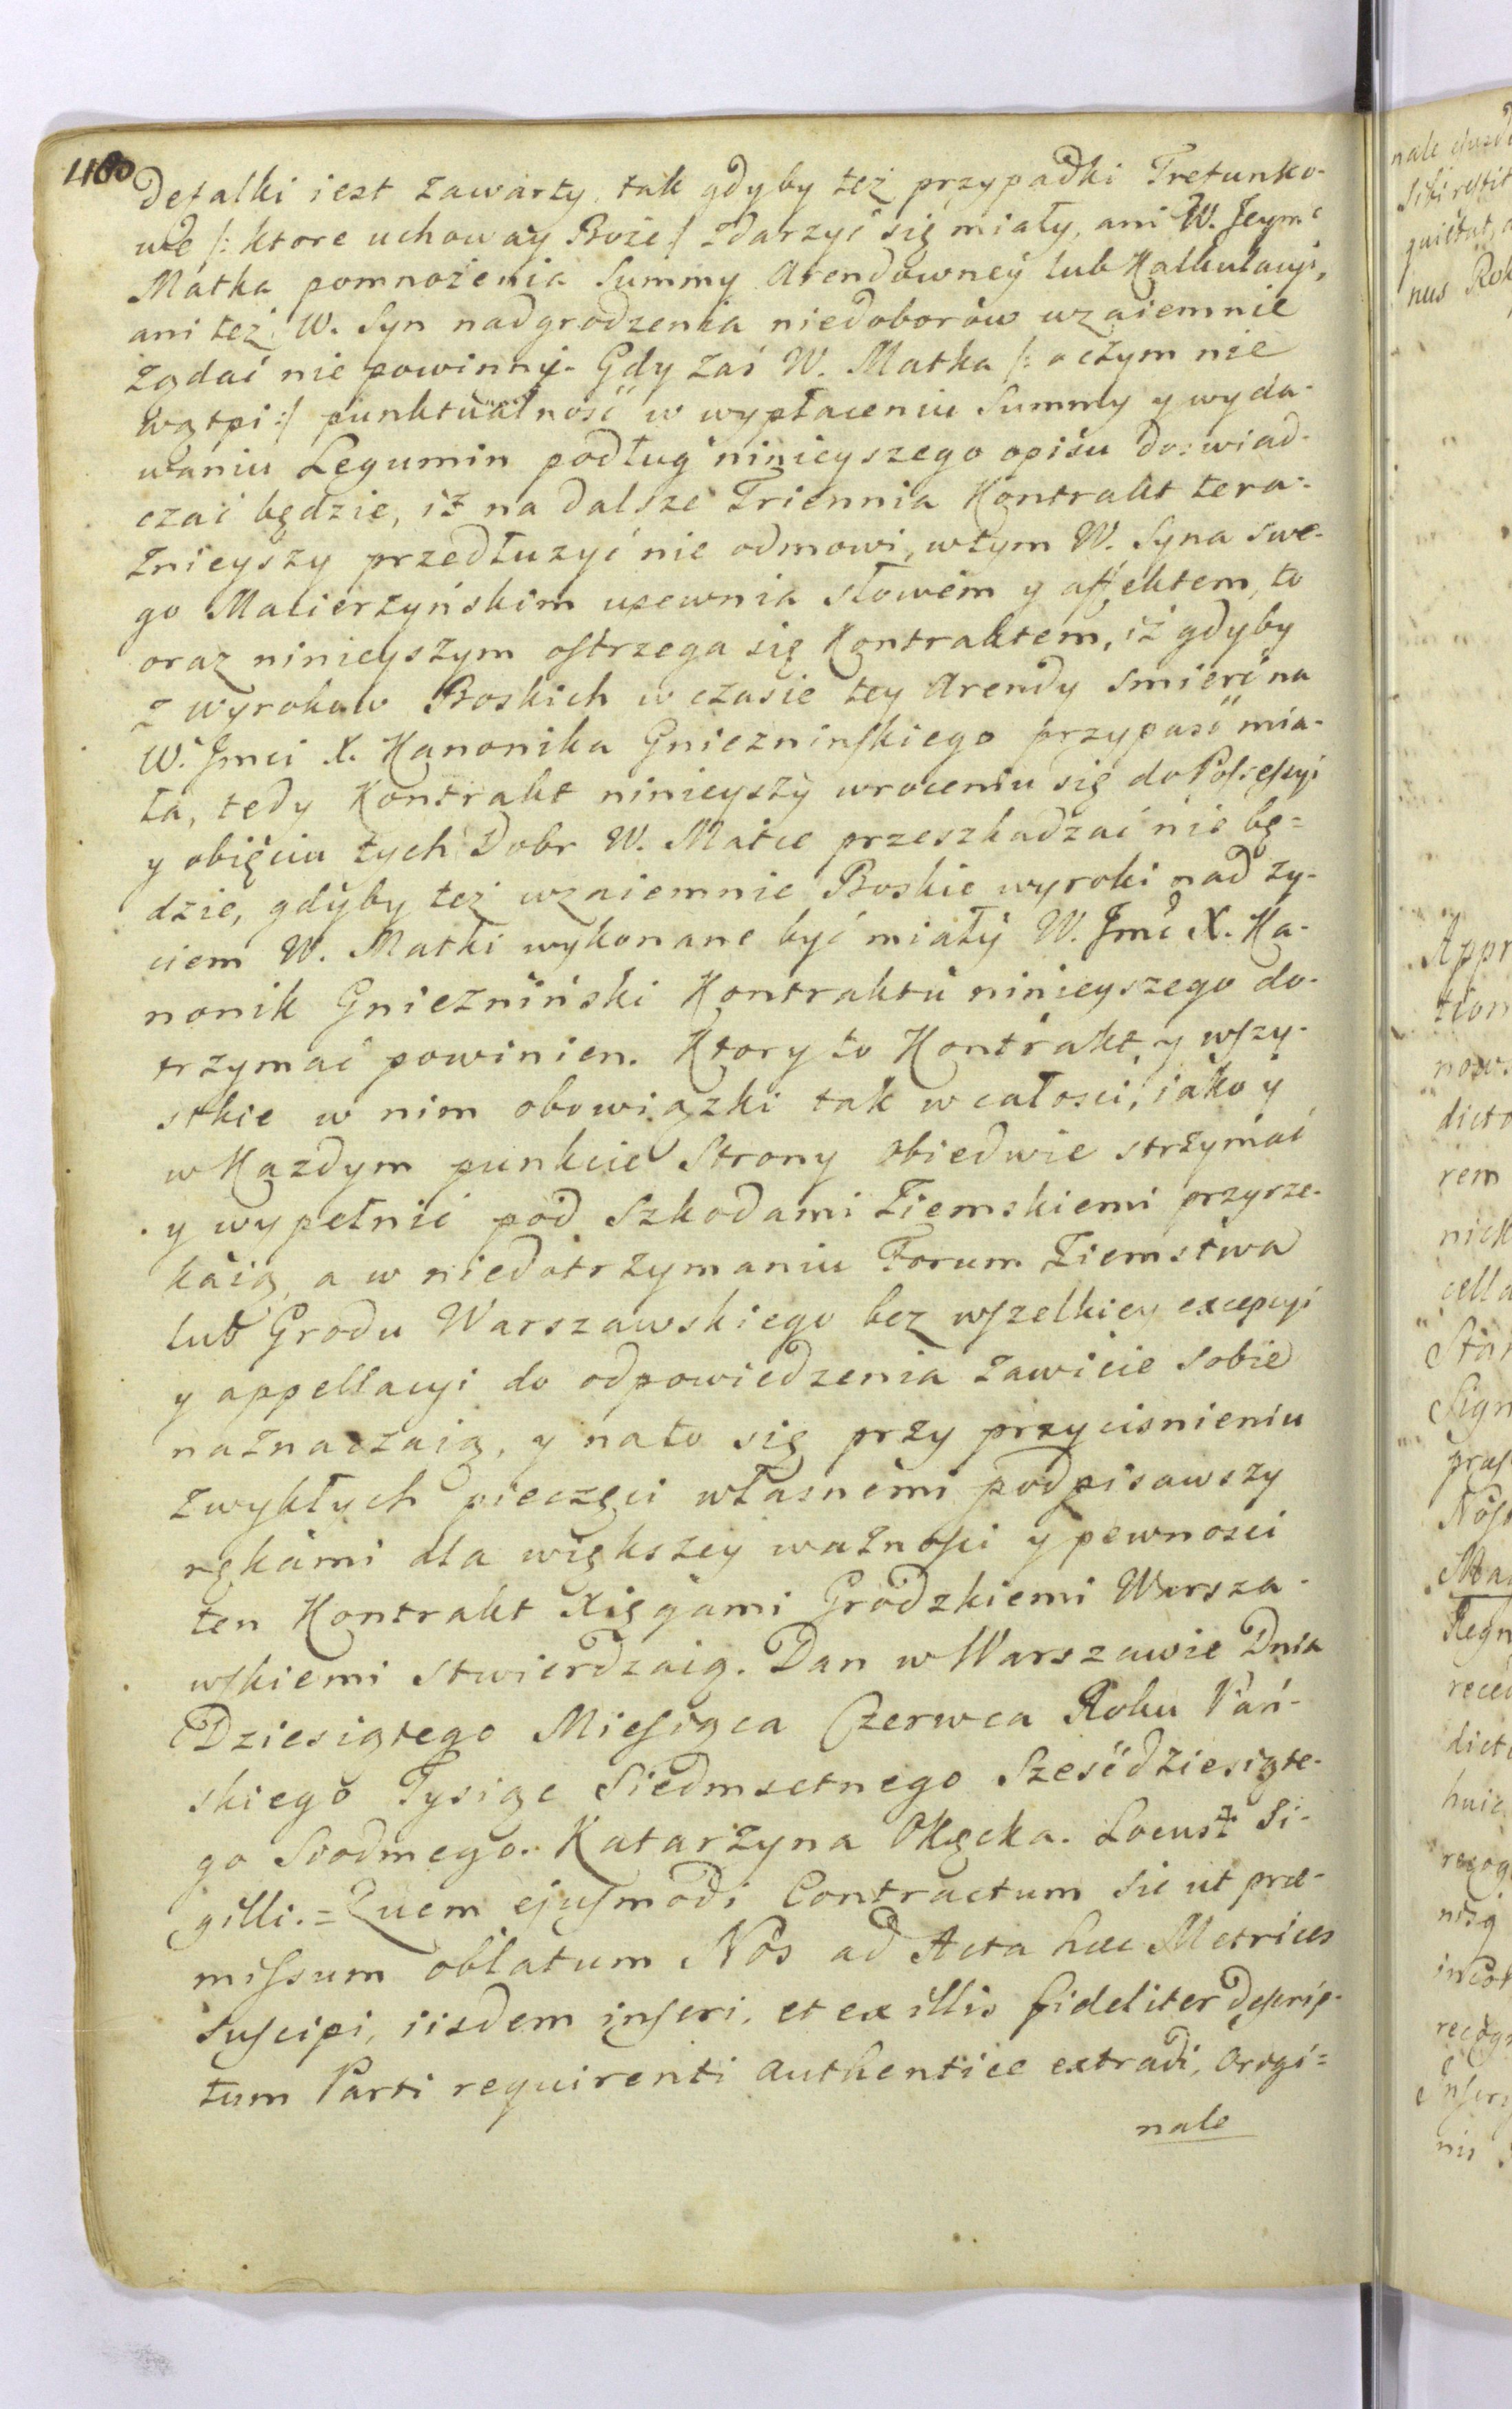 460
Defalki iest zawarty, tak gdyby też przypadki Fretunko-
we /: ktore uchoway Boże :/ zdarzyć się miały, ani W. Jeymć
Matka pomnożenia Summy Arendowney lub Kalkulacyi,
ani też W. Syn nadgrodzenia niedoborow wzaiemnie
żądać nie powinni. Gdy zaś W. Matka /: o czym nie
wątpi :/ punktualność w wypłaceniu Summy y wyda-
waniu Legumin podług ninieyszego opisu doswiad-
czać będzie, iż na dalsze Triennia Kontrakt tera-
znieyszy przedłużyć nie odmowi, w tym W. Syna swe-
go Macierzyńskim upewnia słowem y affektem, to
oraz ninieyszym ostrzega się Kontraktem, iż gdyby
z wyrokow Boskich w czasie tey Arendy smierć na
W. Jmci X. Kanonika Gnieznińskiego przypaść mia-
ła, tedy Kontrakt ninieyszy wroceniu się do Possessyi
y obięciu tych Dobr W. Matce przeszkadzać nie bę-
dzie, gdyby też wzaiemnie Boskie wyroki nad ży-
ciem W. Matki wykonane być miały W. Jmć X. Ka-
nonik Gniezniński Kontraktu ninieyszego do-
trzymać powinien. Ktory to Kontrakt y wszy-
stkie w nim obowiązki tak w całości, iako y
w Każdym punkcie Strony obiedwie strzymać
y wypełnić pod Szkodami Ziemskiemi przyrze-
kaią, a w niedotrzymaniu Forum Ziemstwa
lub Grodu Warszawskiego bez wszelkiey excepcyi
y appellacyi do odpowiedzenia zawicie sobie
naznaczaią, y na to się przy przyciśnieniu
zwykłych pieczęci własnemi podpisawszy
rękami dla większey ważności y pewności
ten Kontrakt Xięgami Grodzkiemi Warsza-
wskiemi stwierdzaią. Dan w Warszawie Dnia
Dziesiątego Miesiąca Czerwca Roku Pań-
skiego Tysiąc Siedmsetnego Sześćdziesiąte-
go Siodmego. Katarzyna Okęcka. Locus Si-
gilli. = Quem ejusmodi Contractum sic ut præ-
missum oblatum Nos ad Acta hæc Metrices
suscipi, iisdem inseri, et ex illis fideliter descrip-
tum Parti requirenti authentice extradi, Origi=
nale